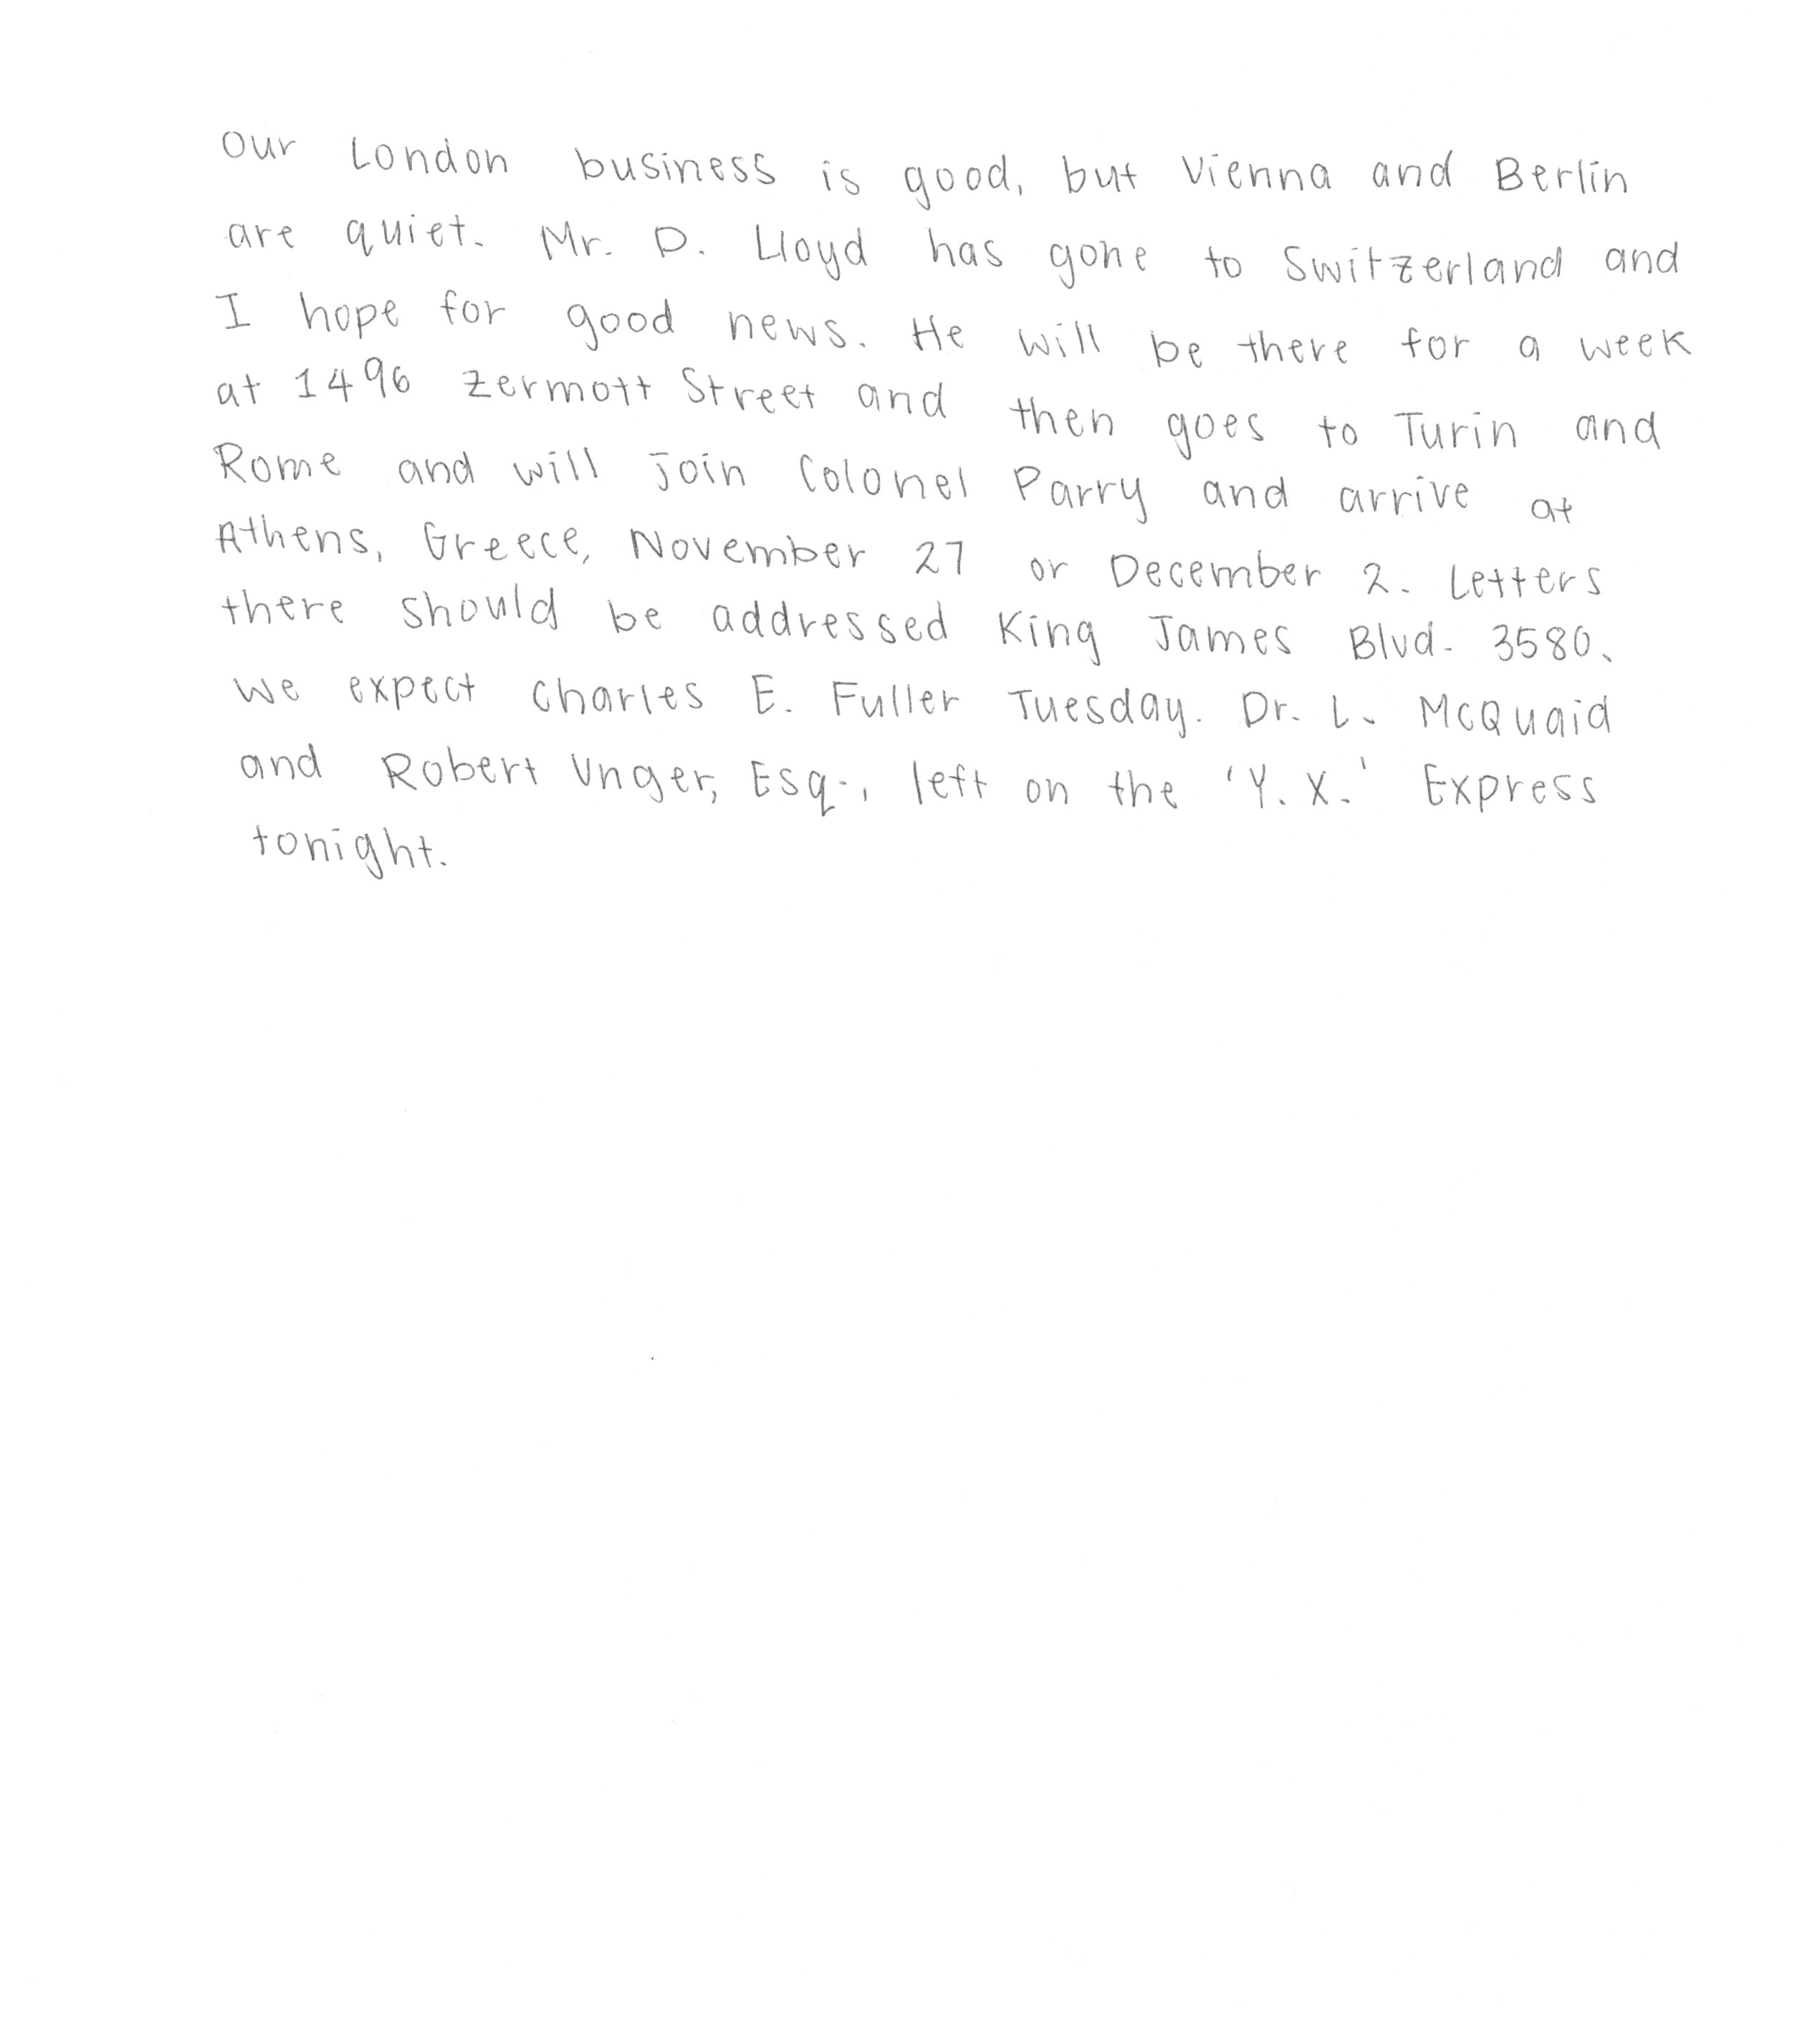 Our London business is good, but Vienna and Berlin
are quiet. Mr. D. Lloyd has gone to Switzerland and
I hope for good news. He will be there for a week
at 1496 Zermott Street and then goes to Turin and
Rome and will join Colonel Parry and arrive at
Athens, Greece, November 27 or December 2. Letters
there should be addressed King James Blvd. 3580.
We expect Charles E. Fuller Tuesday. Dr. L. McQuaid
and Robert Unger, Esq., left on the 'Y. X.' Express
tonight.